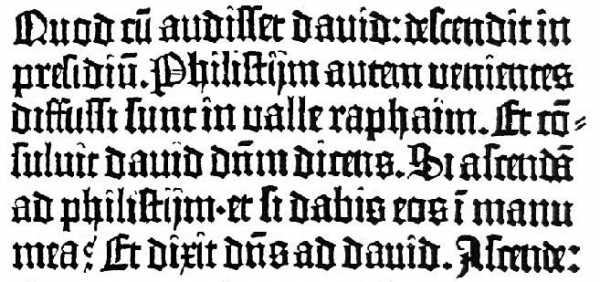 Quod cū audisset dauid: descendit in
presidiū. Philistijm autem venientes
diffusi sunt in valle raphaim. Et cō⸗
suluit dauid dn̄m dicens. Si ascendā
ad philistijm. et si dabis eos ī manu
mea? Et dixit dn̄s ad dauid. Ascende: